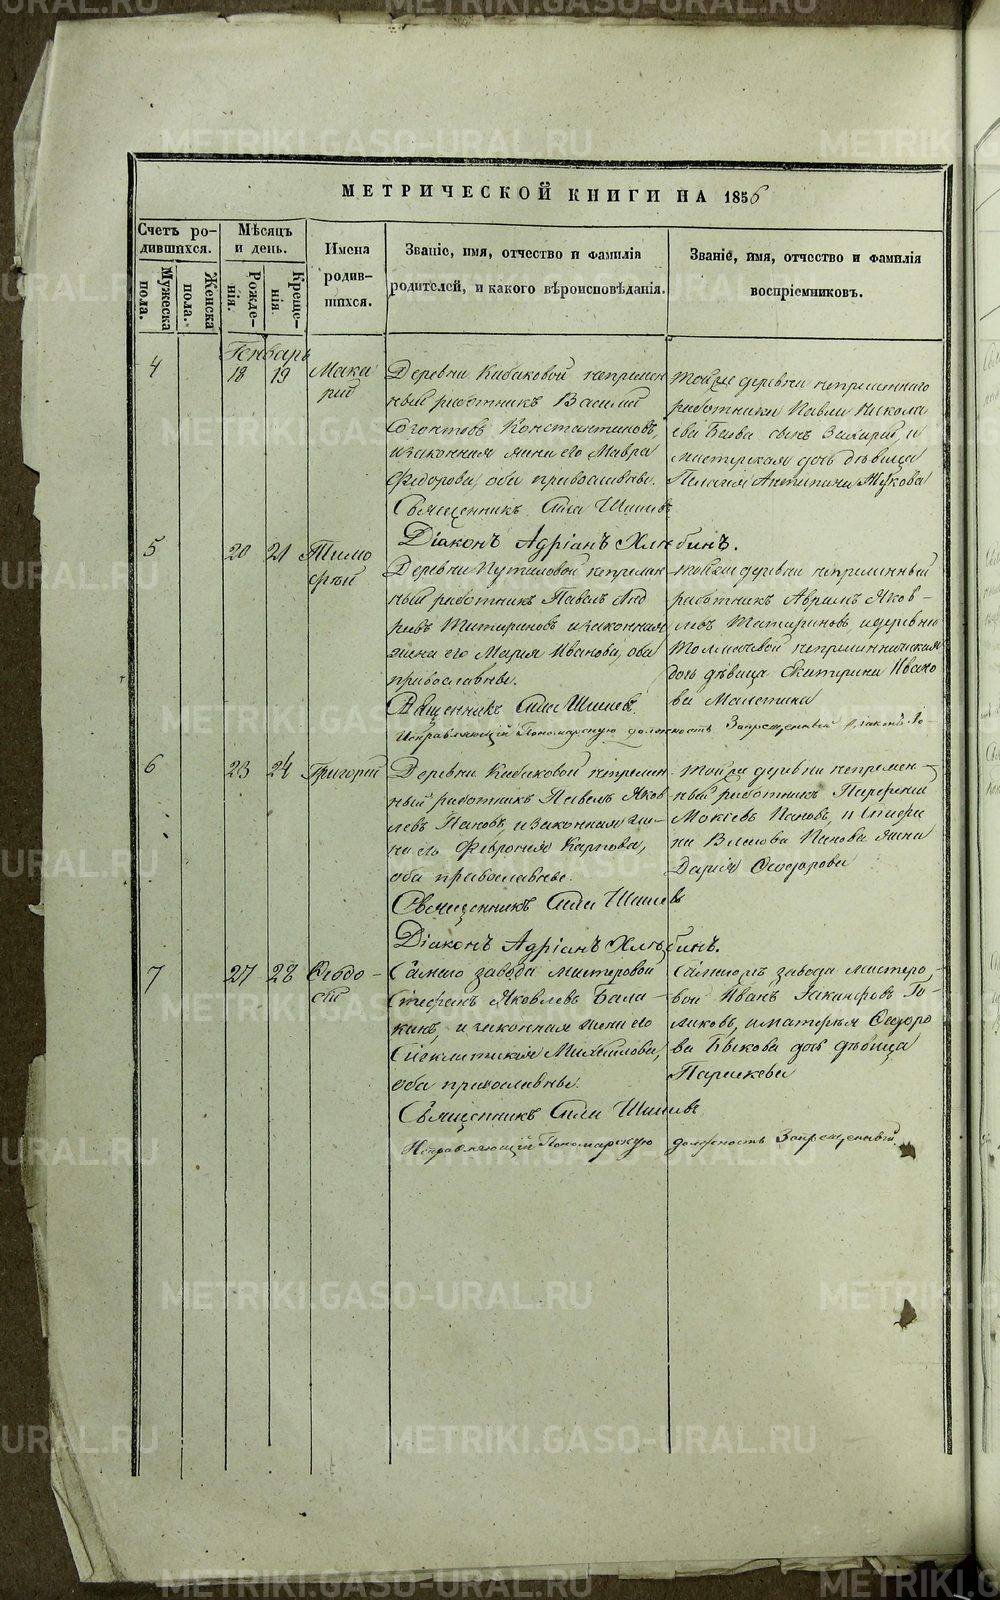 МЕТРИЧЕСКОЙ КНИГИ НА 1856
Счетъ ро-
дившихся.
Мѣсяцъ
и день.
Имена
родив-
шихся.
Званіе, имя, отчество и фамилія
родителей, и какого вѣроисповѣданія.
Званіе, имя, отчество и фамилія
воспріемниковъ.
Мужеска
пола.
Женска
пола.
Рожде-
нія.
Креще-
нія
Генварь
4
18
19
Мака
рій
Деревни Кабаковой непремѣн
ный работникъ Василій
Константиновъ,
и законная жена его Мавра
Федорова, оба православные.
Священникъ Сила Шишевъ
Діаконъ Адріанъ Хлѣбинъ.
Тойже деревни непремѣннаго
работника Павла Никола
ева сынъ Захарій, и
мастерская дочь дѣвица
Пелагія Антипина Жукова
5
20
21
Тимо
ѳей
Деревни Путиловой непремѣн
ный работникъ Павелъ Анд
реевъ Татариновъ и законная
жена его Марія Иванова, оба
православные.
Священникъ Сила Шишевъ.
Исправляющій Пономарскую должность Запрещенный Діаконъ
Тойже деревни непременный
работникъ Аврамъ Яков-
левъ Татариновъ, и деревни
Толмачевой
дочь дѣвица Екатерина Ивано
ва
6
23
24
Григорій
Деревни Кабаковой непремѣн
ный работникъ Павелъ Яков
левъ Пановъ, и законная же-
на его Февронія Карпова,
оба православные.
Священникъ Сила Шишевъ
Діаконъ Адріанъ Хлѣбинъ.
Тойже деревни непремен-
ный работникъ Парфеній
Мокіевъ Пановъ, и
Власова Панова жена
Дарія Ѳеодорова
7
27
28
Ѳеодо-
сій
Самаго завода мастеровой
Стефанъ Яковлевъ Бала-
кинъ, и законная жена его
Сигклитикія Михайлова,
оба православные.
Священникъ Сила Шишевъ
Исправляющій Пономарскую должность Запрещенный
завода мастеро-
вой Иванъ Го-
ликовъ, и Ѳеодоро
ва Быкова дочь дѣвица
Параскева